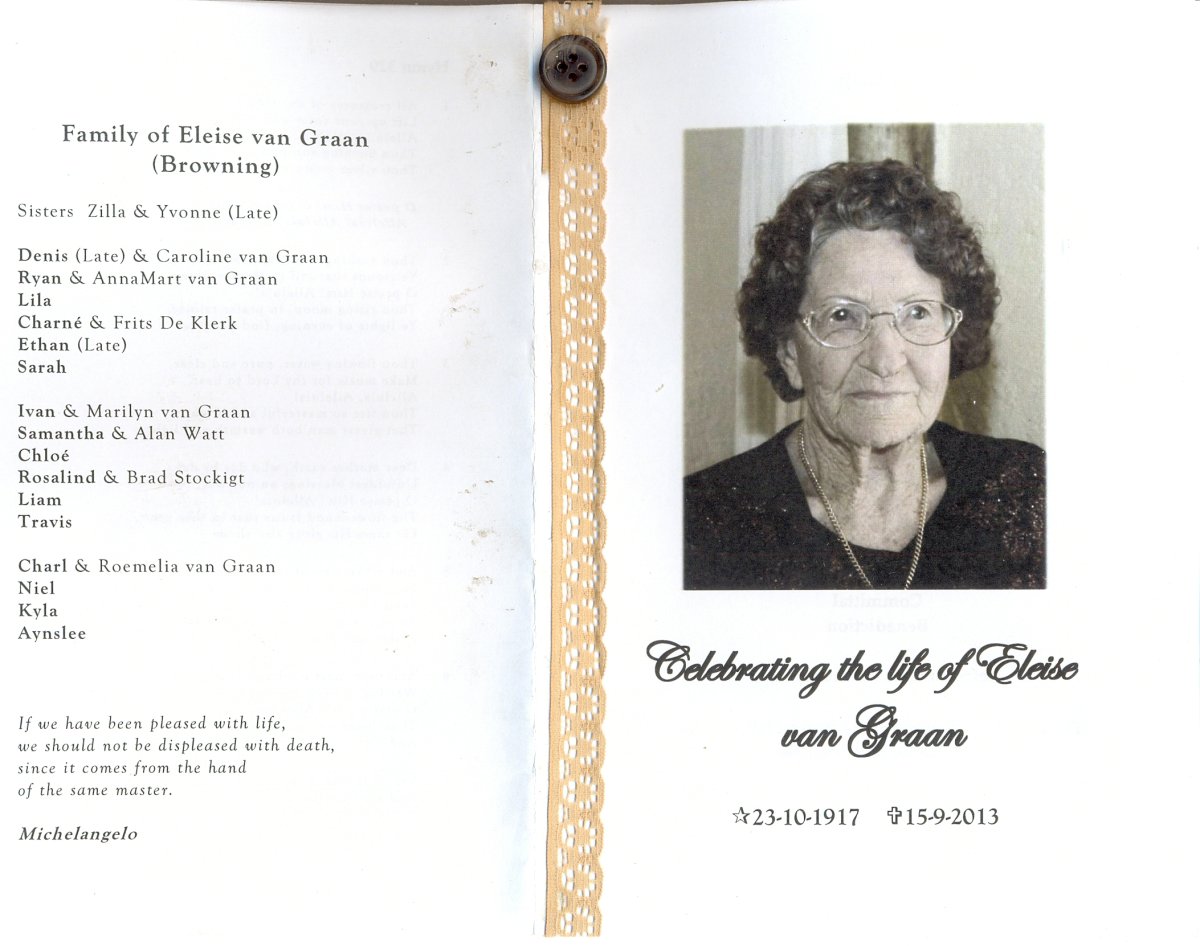 Family of Eleise van Graan
(Browning)
Sisters Zilla & Yvonne (Late)
Denis (Late) & Caroline van Graan
Ryan & AnnaMart van Graan
Lila
Charné & Frits De Klerk
Ethan (Late)
Sarah
Ivan & Marilyn van Graan
Samantha & Alan Watt
Chloé
Rosalind & Brad Stockigt
Liam
Travis
Charl & Roemelia van Graan
Niel
Kyla
Aynslee
If we have been pleased with life,
we should not be displeased with death,
since it comes from the hand
of the same master.
Michelangelo
Celebrating the life of Eleise
van Graan
☆23-10-1917 ✞15-9-2013